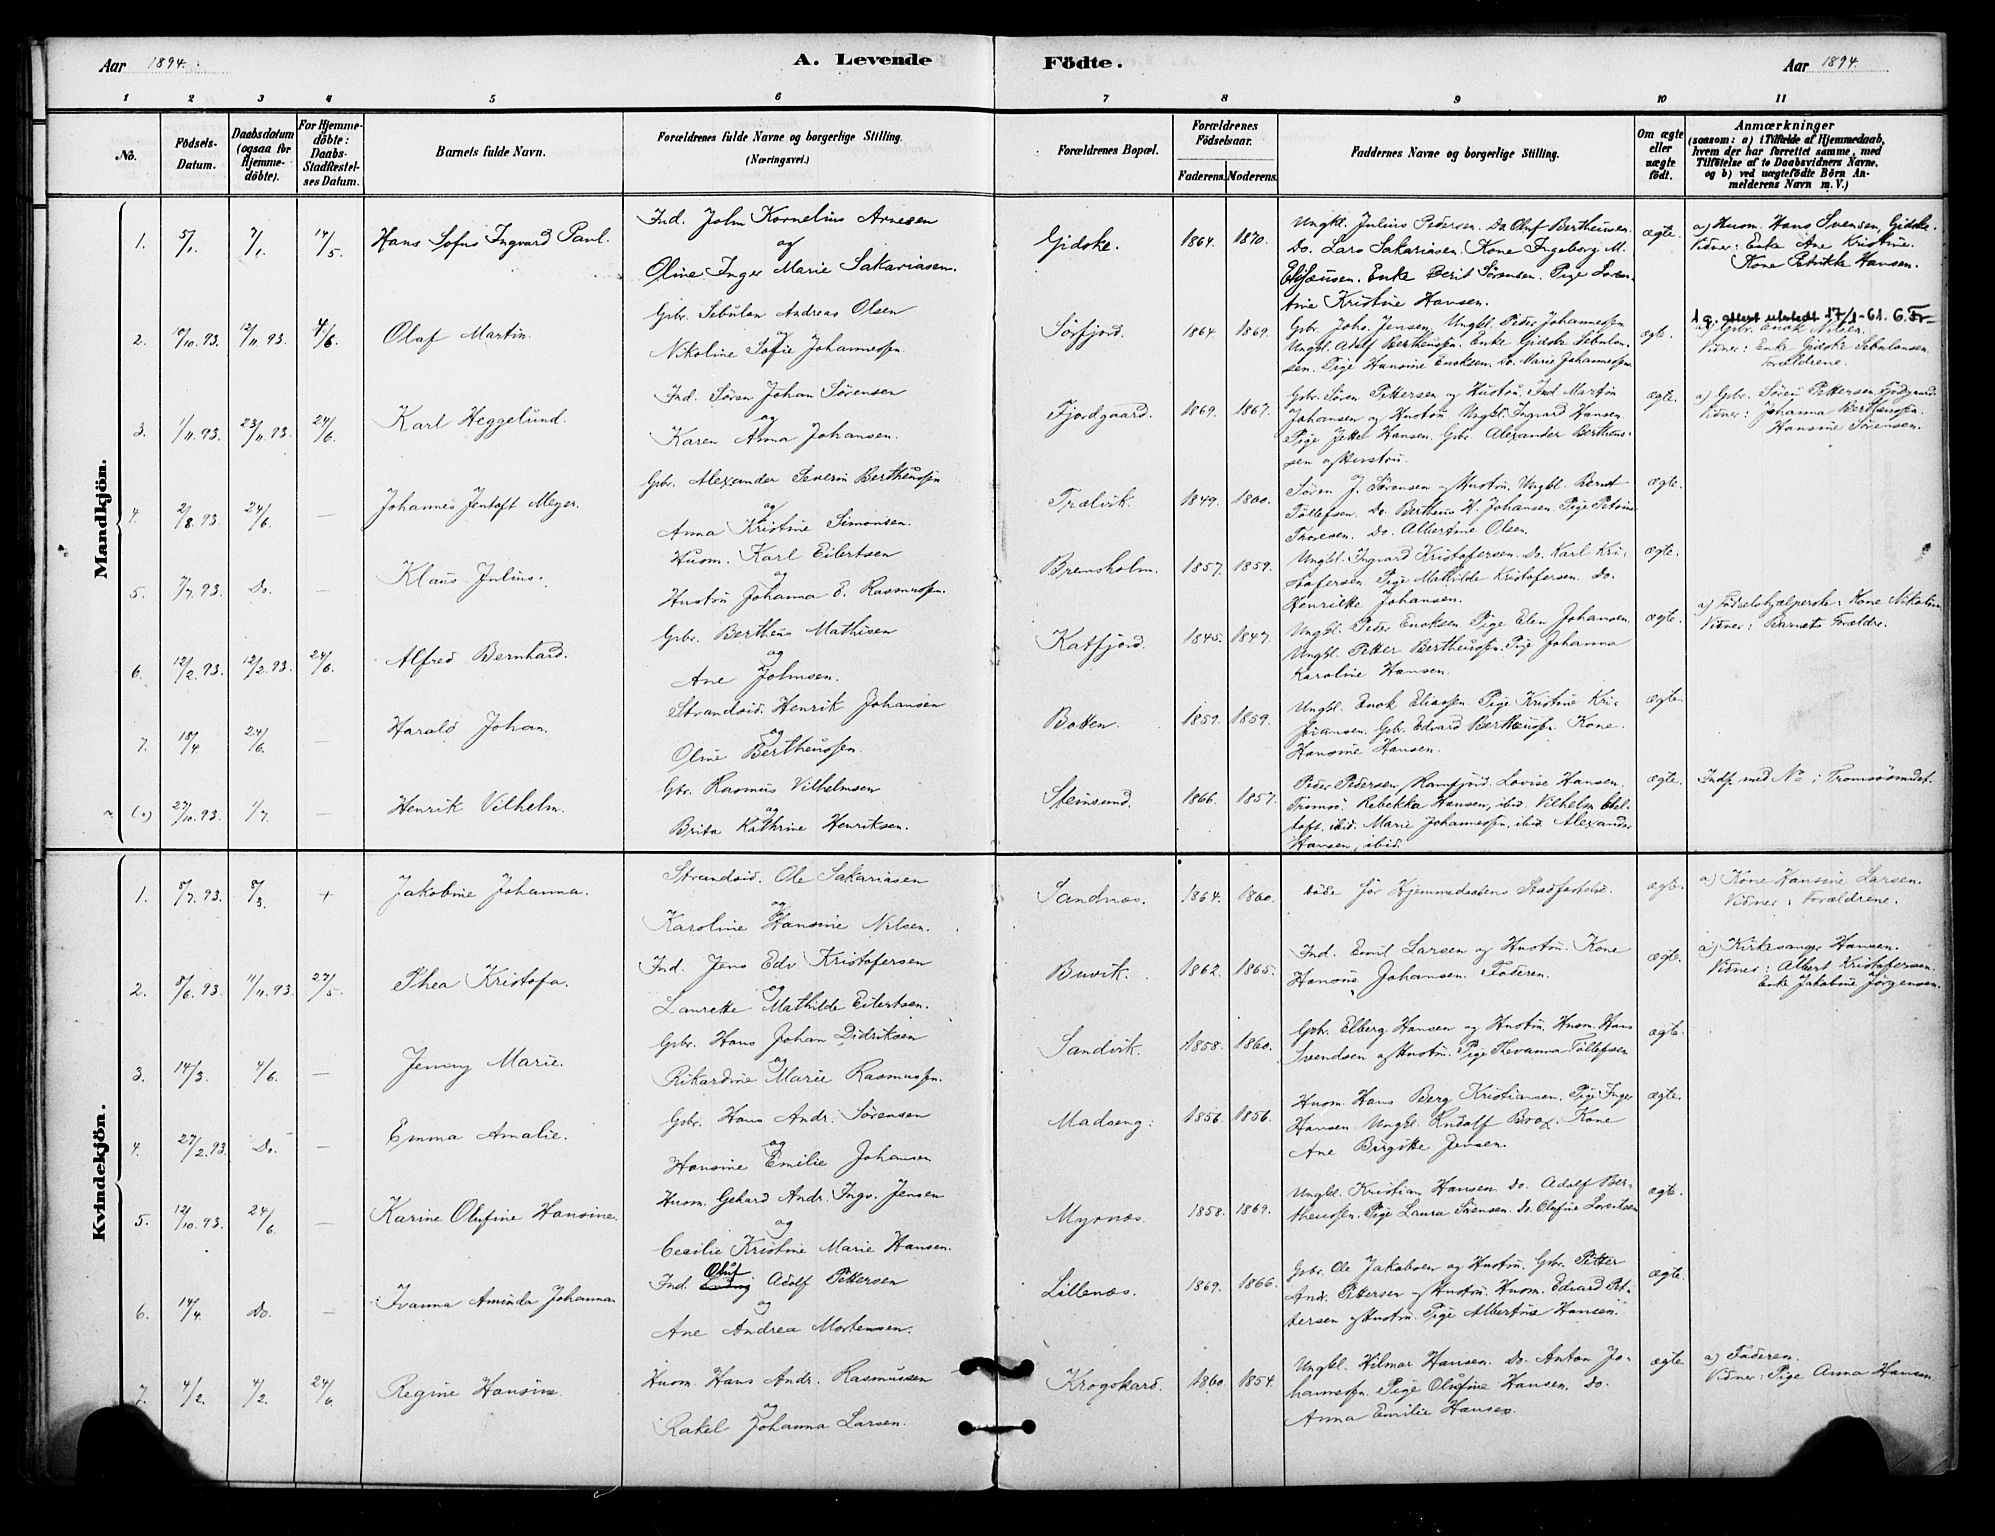 Aar 1894.
A. Levende
Födte.
Aar 1894.
1 2 3 4 5 6 7 8 9 10 11
No.
Födsels-Datum.
Daabsdatum (ogsaa for Hjemme-döbte).
For Hjemme-döbte: Daabs-Stadfæstel-ses Datum.
Barnets fulde Navn.
Forældrenes fulde Navne og borgerlige Stilling. (Næringsvei.)
Forældrenes Bopæl.
Forældrenes Födselsaar.
Faderens. Moderens.
Faddernes Navne og borgerlige Stilling.
Om ægte eller uægte födt.
Anmærkninger
(saasom: a) i Tilfælde af Hjemmedaab, hvem der har forrettet samme, med Tilföielse af to Daabsvidners Navne, og b) ved uægtefödte Börn An-melderens Navn m. V.)
Mandkjön.
1. 5/1. 7/1. 14/5. Hans Sofus Ingvard Paul.
Ind. John Kornelius Arnesen
og
Oline Inger Marie Sakariasen.
Gidske. 1864. 1870.
Ungkl. Julius Pedersen. Do. Oluf Bertheussen.
Do. Lars Sakariasen. Kone Ingeborg M.
Enke Berit Sørensen. Pige Loren-
tine Kristine Hansen.
ægte.
a) Husm. Hans Svensen, Gidske.
Vidner: Enke Ane Kristine.
Kone Petrikke Hansen.
2. 10/10.93. 12/11.93. 4/6. Olaf Martin.
Gbr. Sebulon Andreas Olsen
og
Nikoline Sofie Johannessen.
Sørfjord. 1864. 1869.
Gbr. Johs. Jensen. Ungkl. Peder Johannessen
Ungkl. Adolf Bertheussen. Enke Gidske Sebulon-
sen. Pige Hansine Enoksen. Do. Marie Johannessen.
ægte.
1 g. attest utstedt 17/1-61. G. Fr-
a) Gbr. Enok Nilsen.
Vidner: Enke Gidske Sebulonsen.
Forældrene.
3. 1/11.93. 23/11.93. 24/6. Karl Heggelund.
Ind. Søren Johan Sørensen
og
Karen Anna Johansen.
Fjordgaard. 1869. 1867.
Gbr. Søren Pettersen og Hustru. Ind. Martin
Johansen og Hustru. Ungkl. Ingvard Hansen.
Pige Jette Hansen. Gbr. Alexander Bertheus-
sen og Hustru.
ægte.
a) Gbr. Søren Pettersen Fjordgaard.
Vidner: Johanna Bertheussen.
Hansine Sørensen.
4. 2/8.93. 24/6. — Johannes Jentoft Meyer.
Gbr. Alexander Severin Bertheussen
og
Anna Kristine Simonsen.
Trælvik. 1849. 1860.
Søren J. Sørensen og Hustru. Ungkl. Bernt
Tollefsen. Do. Bertheus H. Johansen. Pige Petrine
Thoresen. Do. Albertine Olsen.
ægte.
5. 7/7.93. Do. — Klaus Julius.
Husm. Karl Eilertsen
og
Hustru Johanna E. Rasmussen.
Brensholm. 1857. 1859.
Ungkl. Ingvard Kristofersen. Do. Karl Kri-
stofersen. Pige Mathilde Kristofersen. Do.
Henrikke Johansen.
ægte.
6. 12/2.93. 12/2.93. 24/6. Alfred Bernhard.
Gbr. Bertheus Mathisen
og
Ane Johnsen.
Katfjord. 1845. 1847.
Ungkl. Peder Enoksen. Pige Elen Johansen.
Ungkl. Petter Bertheussen. Pige Johanna
Karoline Hansen.
ægte.
a) Fødselshjælperske: Kone Nikoline
Vidner: Barnets Forældre.
7. 18/4. 24/6. — Harald Johan.
Strandsid. Henrik Johansen
og
Oline Bertheussen.
Botten. 1859. 1859.
Ungkl. Enok Eliassen. Pige Kristine Kri-
stiansen. Gbr. Edvard Bertheussen. Kone
Hansine Hansen.
ægte.
(0) 27/10.93. 1/7. — Henrik Vilhelm.
Gbr. Rasmus Vilhelmsen
og
Brita Kathrine Henriksen.
Steinsund. 1866. 1857.
Peder Pedersen, Ramfjord. Lovise Hansen.
Tromsø. Rebekka Hansen, ibid. Vilhelm Ebel-
toft, ibid. Marie Johannessen, ibid. Alexander
Hansen, ibid.
ægte.
Indf. med No. i Tromsösundet.
Kvindekjön.
1. 8/7.93. 8/3. + Jakobine Johanna.
Strandsid. Ole Sakariasen
og
Karoline Hansine Nilsen.
Sandnes. 1864. 1860.
Døde før Hjemmedaabens Stadfæstelse.
ægte.
a) Kone Hansine Larsen.
Vidner: Forældrene.
2. 8/6.93. 11/11.93. 27/5. Thea Kristofa.
Ind. Jens Edv. Kristofersen
og
Laurette Mathilde Eilertsen.
Buvik. 1862. 1865.
Ind. Emil Larsen og Hustru. Kone
Hansine Johansen. Faderen.
ægte.
a) Kirkesanger Hansen.
Vidner: Albert Kristofersen.
Enke Jakobine Jørgensen.
3. 14/3. 4/6. — Jenny Marie.
Gbr. Hans Johan Didriksen
og
Rikardine Marie Rasmussen.
Sandvik. 1858. 1860.
Gbr. Elberg Hansen og Hustru. Husm. Hans
Svendsen og Hustru. Pige Thevanna Tollefsen
ægte.
4. 27/2.93. Do. — Emma Amalie.
Gbr. Hans Andr. Sørensen
og
Hansine Emilie Johansen
Madseng: 1856. 1856.
Husm. Hans Berg Kristiansen. Pige Inger
Hansen. Ungkl. Rudolf Brox. Kone
Ane Birgitte Jensen.
ægte.
5. 12/10.93. 24/6. — Karine Olufine Hansine.
Husm. Gerhard Andr. Ingv. Jensen
og
Cecilie Kristine Marie Hansen.
Myrnes. 1858. 1869.
Ungkl. Kristian Hansen. Do. Adolf Ber-
theussen. Pige Laura Svensen. Do. Olufine Lorentsen
ægte.
6. 14/4. Do. — Ivanna Aminda Johanna
Ind. Oluf Adolf Pettersen
og
Ane Andrea Mortensen.
Lillenes. 1869. 1866.
Gbr. Ole Jakobsen og Hustru. Gbr. Petter
Andr. Pettersen og Hustru. Husm. Edvard Pet-
tersen og Hustru. Pige Albertine Hansen.
ægte.
7. 4/2. 4/2. 24/6. Regine Hansine.
Husm. Hans Andr. Rasmussen
og
Rakel Johanna Larsen.
Krogskard. 1860 1854.
Ungkl. Hilmar Hansen. Do. Anton Jo-
hannessen. Pige Olufine Hansen. Do.
Anna Emilie Hansen.
ægte
a) Faderen.
Vidner: Pige Anna Hansen.